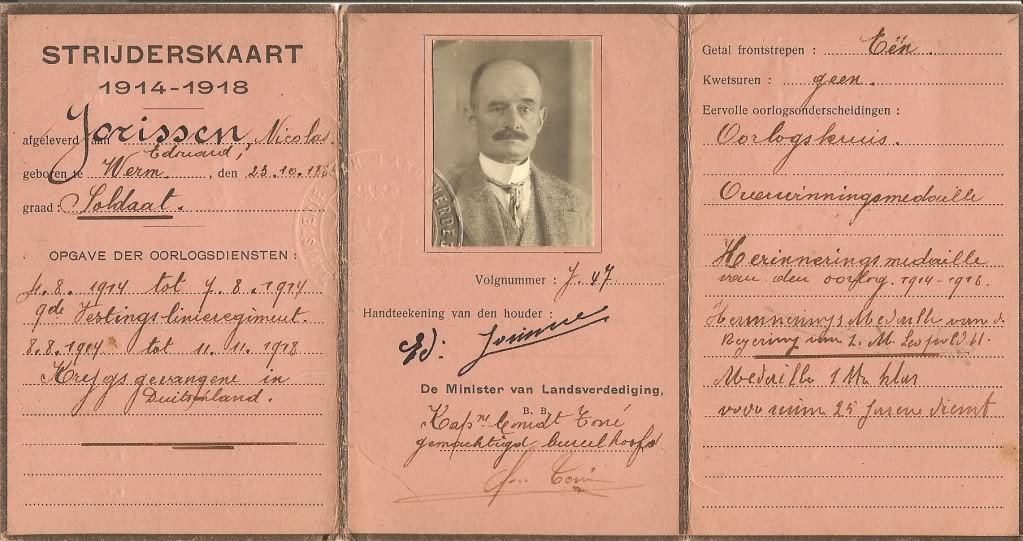 STRIJDERSKAART
1914-1918
afgeleverd aan Jorissen, Nicolas
Edouard,
geboren te Werm, den 23.10.188
graad: Soldaat.
OPGAVE DER OORLOGSDIENSTEN:
4.8.1914 tot 7.8.1914
9de Vestings-linieregiment.
8.8.1914 tot 11.11.1918
Krijgsgevangene in
Duitschland.
Volgnummer: J. 47
Handteekening van den houder:
Ed. Jorissen
De Minister van Landsverdediging,
B. B.
gemachtigd bureelhoofd
Getal frontstrepen: Eén.
Kwetsuren: geen.
Eervolle oorlogsonderscheidingen:
Oorlogskruis.
Overwinningsmedaille
Herinneringsmedaille
van den oorlog 1914-1918.
Herinnerings Medaille van d.
Regering van Z. M. Leopold II.
Medaille 1ste klas
voor ruim 25 jaren dienst